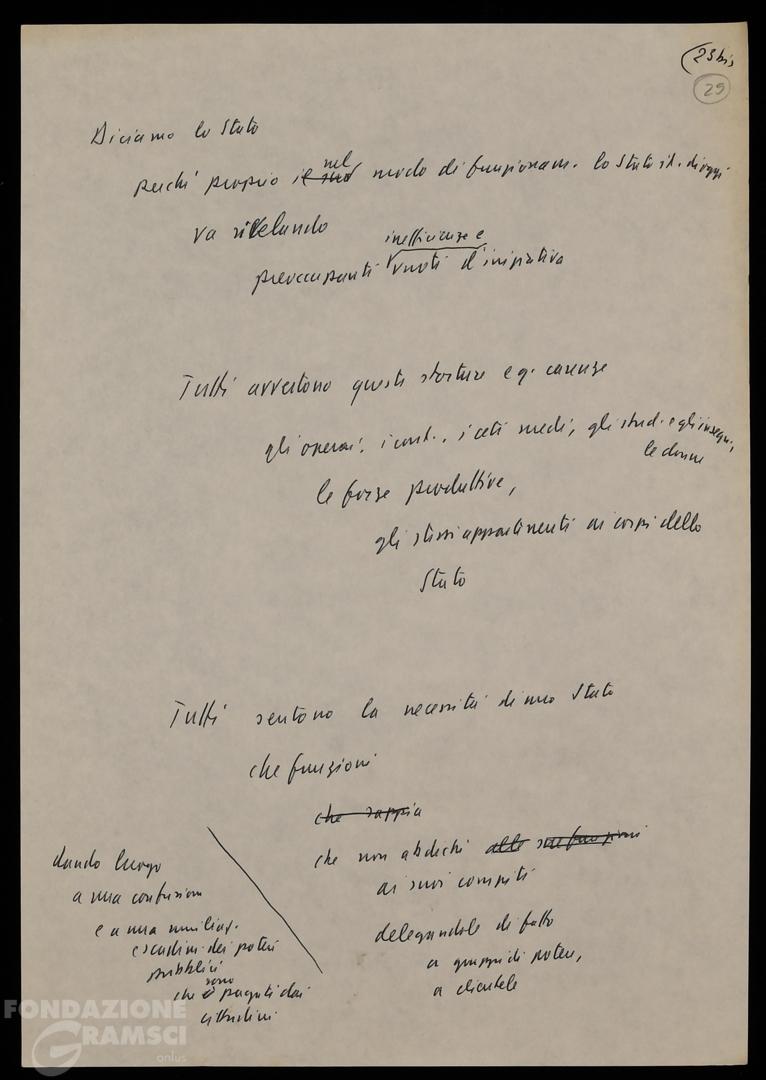 (25 bis
29
Diciamo lo Stato
perché proprio il suo nel modo di funzionam. lo Stato it. di oggi
va rivelando
preoccupanti inefficienze e vuoti d'iniziativa
Tutti avvertono queste storture e q. carenze
gli operai, i cont., i ceti medi, gli stud. e gli insegn.,
le donne
le forze produttive,
gli stessi appartenenti ai corpi dello
Stato
Tutti sentono la necessità di uno Stato
che funzioni
che sappia
che non abdichi alle sue funzioni
ai suoi compiti
delegandole di fatto
a gruppi di potere,
a clientele
dando luogo
a una confusione
e a una umiliaz.
e scadim. dei poteri
pubblici
che sono pagati dai
cittadini
FONDAZIONE
GRAMSCI
onlus